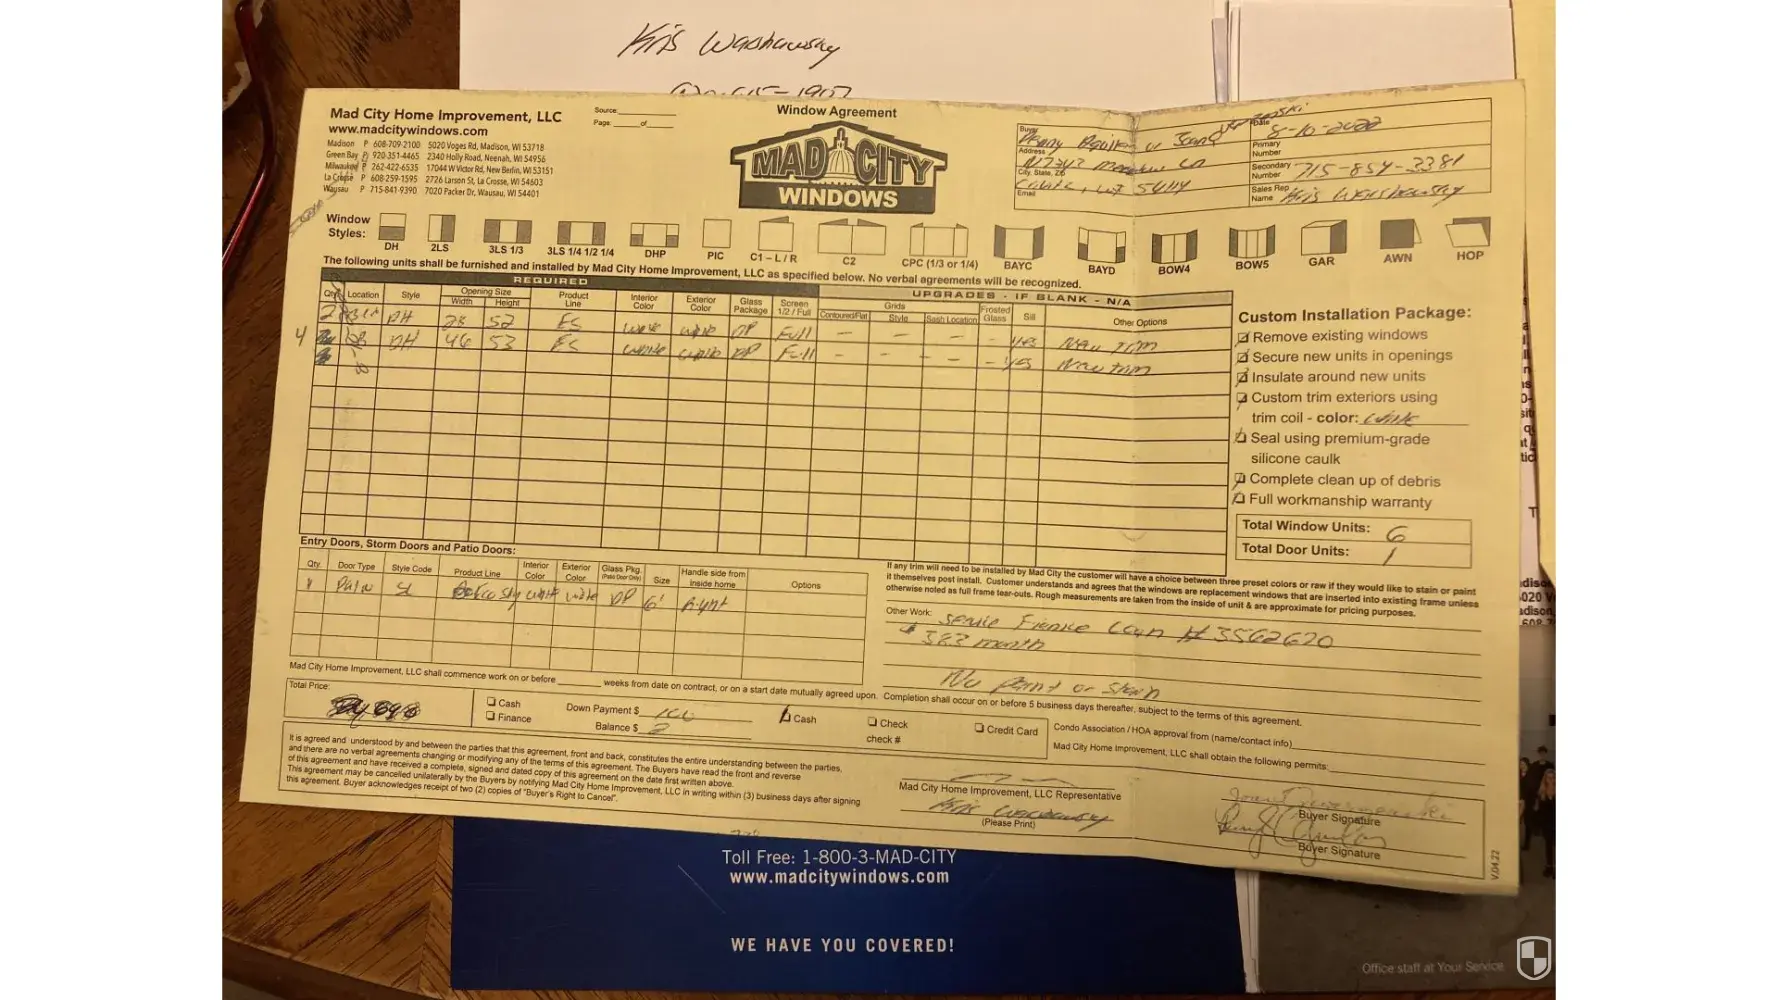 Kris Washawsky
Mad City Home Improvement, LLC
www.madcitywindows.com
Madison P 608-709-2100 5020 Voges Rd, Madison, WI 53718
Green Bay P 920-351-4465 2340 Holly Road, Neenah, WI 54956
Milwaukee P 262-422-6535 17044 W Victor Rd, New Berlin, WI 53151
La Crosse P 608-259-1595 2726 Larson St, La Crosse, WI 54603
Wausau P 715-841-9390 7020 Packer Dr, Wausau, WI 54401
Source:
Page: of
Window Agreement
MAD CITY
WINDOWS
Buyer Penny
Address
City, State, Zip WI 54114
Email
Date 8-10-2022
Primary Number
Secondary Number 715-854-3381
Sales Rep Name Kris
Window Styles:
DH 2LS 3LS 1/3 3LS 1/4 1/2 1/4 DHP PIC C1 - L / R C2 CPC (1/3 or 1/4) BAYC BAYD BOW4 BOW5 GAR AWN HOP
The following units shall be furnished and installed by Mad City Home Improvement, LLC as specified below. No verbal agreements will be recognized.
REQUIRED
UPGRADES - IF BLANK - N/A
Qty. Location Style Opening Size Width Height Product Line Interior Color Exterior Color Glass Package Screen 1/2 / Full Grids Contoured/Flat Style Sash Location Frosted Glass Sill Other Options
2 DH 28 52 ES DP Full - - - - yes New trim
4 DH 46 53 ES white white DP Full - - - - yes New trim
Custom Installation Package:
Remove existing windows
Secure new units in openings
Insulate around new units
Custom trim exteriors using
trim coil - color: white
Seal using premium-grade
silicone caulk
Complete clean up of debris
Full workmanship warranty
Total Window Units: 6
Total Door Units: 1
Entry Doors, Storm Doors and Patio Doors:
Qty. Door Type Style Code Product Line Interior Color Exterior Color Glass Pkg. (Patio Door Only) Size Handle side from inside home Options
1 white white DP 6' Right
If any trim will need to be installed by Mad City the customer will have a choice between three preset colors or raw if they would like to stain or paint
it themselves post install. Customer understands and agrees that the windows are replacement windows that are inserted into existing frame unless
otherwise noted as full frame tear-outs. Rough measurements are taken from the inside of unit & are approximate for pricing purposes.
Other Work: Loan # 3562620
$ 383 month
No paint or stain
Mad City Home Improvement, LLC shall commence work on or before weeks from date on contract, or on a start date mutually agreed upon. Completion shall occur on or before 5 business days thereafter, subject to the terms of this agreement.
Total Price:
Cash
Finance
Down Payment $ 100
Balance $
Cash
Check
check #
Credit Card
Condo Association / HOA approval from (name/contact info)
Mad City Home Improvement, LLC shall obtain the following permits:
It is agreed and understood by and between the parties that this agreement, front and back, constitutes the entire understanding between the parties,
and there are no verbal agreements changing or modifying any of the terms of this agreement. The Buyers have read the front and reverse
of this agreement and have received a complete, signed and dated copy of this agreement on the date first written above.
This agreement may be cancelled unilaterally by the Buyers by notifying Mad City Home Improvement, LLC in writing within (3) business days after signing
this agreement. Buyer acknowledges receipt of two (2) copies of "Buyer's Right to Cancel".
Mad City Home Improvement, LLC Representative
Kris
(Please Print)
Buyer Signature
Buyer Signature
V.04.22
Toll Free: 1-800-3-MAD-CITY
www.madcitywindows.com
WE HAVE YOU COVERED!
Office staff at Your Service